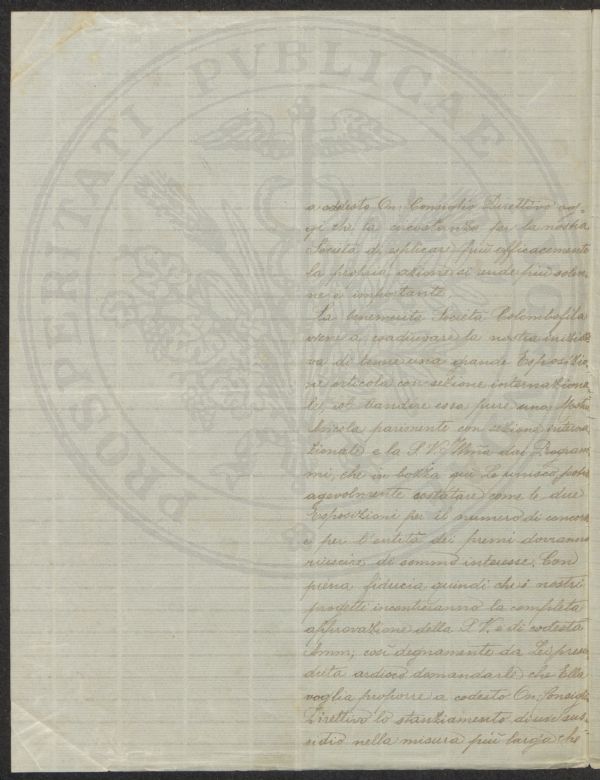 PROSPERITATI PVBLICAE
a codesto On. Consiglio Direttivo og-
gi che la circostanza per la nostra
Società di esplicare più efficacemente
la propria azione si rende più solen-
ne e importante.
La benemerita Società Colombofila
viene a coadiuvare la nostra iniziati-
va di tenere una grande Esposizio-
ne avicola con sezione internaziona-
le, col bandire essa pure una Mostra
avicola parimente con sezione interna-
zionale e la S. V. Illma dai Program-
mi, che in bozza qui Le unisco, potrà
agevolmente costatare come le due
Esposizioni per il numero di concorsi
e per l'entità dei premi dovranno
riuscire di sommo interesse. Con
piena fiducia quindi che i nostri
progetti incontreranno la completa
approvazione della S. V. e di codesta
Amm; così degnamente da Lei presie
duta ardisco domandarle che Ella
voglia proporre a codesto On. Consiglio
Direttivo lo stanziamento di un sus-
sidio nella misura più larga che